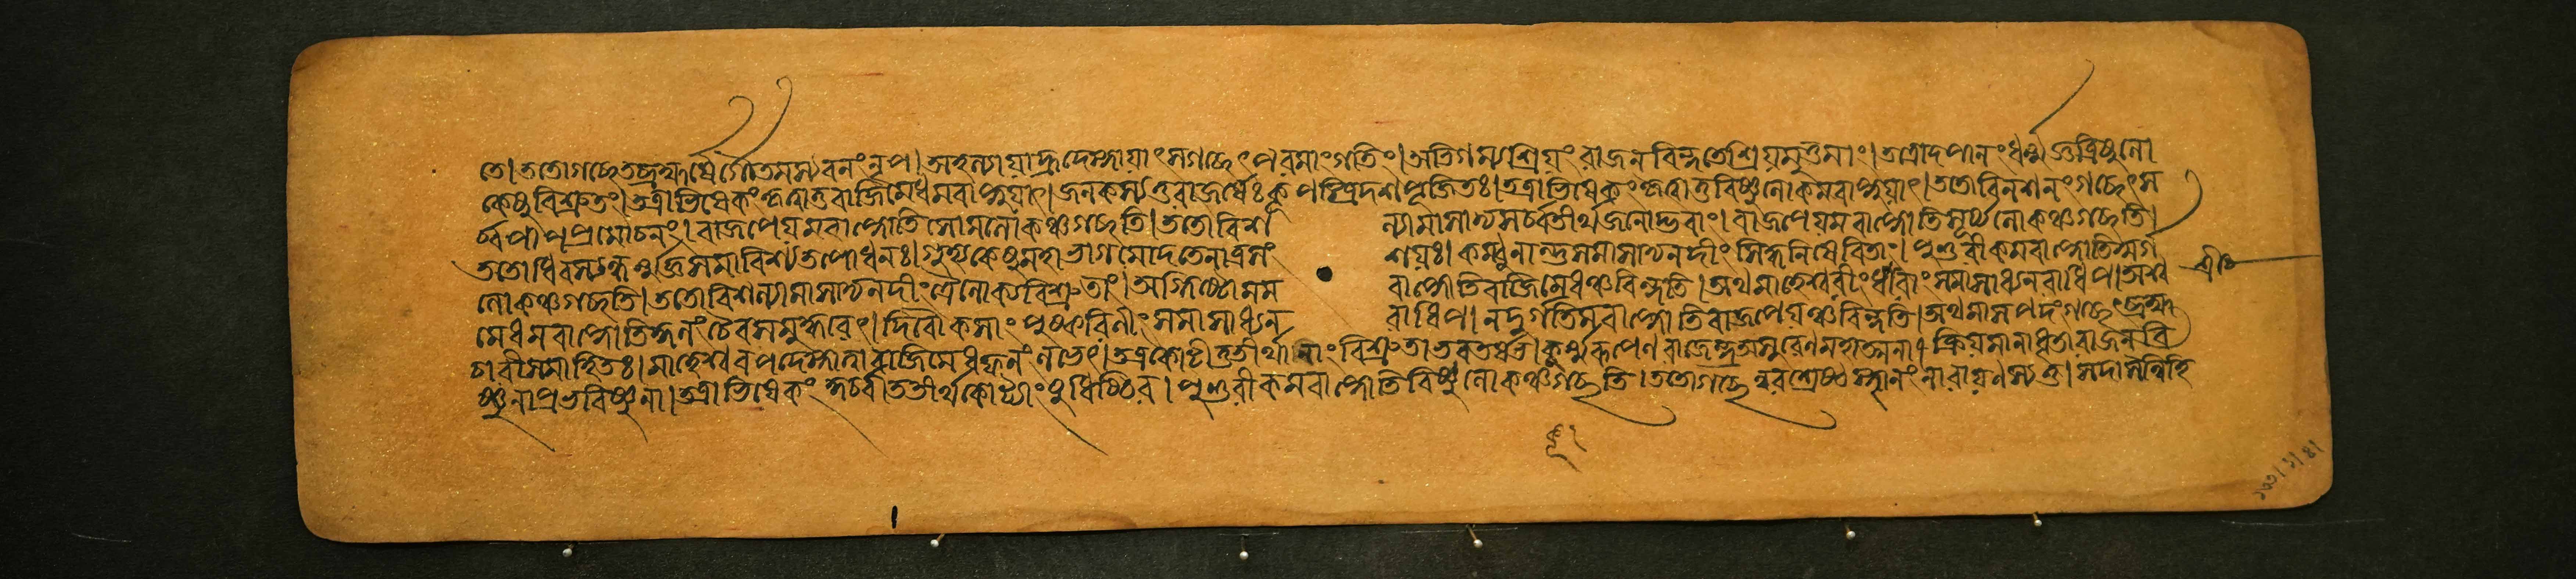 তে।ততোগচ্ছেতব্রহ্মর্ষের্গৌতমস্যবনংনৃপ।অহল্যায়াহ্রদেস্নায়াৎসগচ্ছেৎপরমাংগতিং।অভিগম্যশ্রিয়ংরাজনবিন্দতেশ্রিয়মুত্তমাং।তত্রোদপানংধর্ম্মজ্ঞত্রিষুলো
কেষুবিশ্রুতং।তত্রাভিষেকংকৃত্বাতুবাজিমেধমবাপ্নুয়াৎ।জনকস্যতুরাজর্ষেঃকূপস্ত্রিদশপূজিতঃ।তত্রাভিষেকংকৃত্বাতুবিষ্ণুলোকমবাপ্নুয়াৎ।ততোবিনশনংগচ্ছেৎস
র্ব্বপাপপ্রমোচনং।বাজপেয়মবাপ্নোতিসোমলোকঞ্চগচ্ছতি।ততোবিশ ল্যামাসাদ্যসর্ব্বতীর্থজলোদ্ভবাং।বাজপেয়মবাপ্নোতিসূর্য্যলোকঞ্চগচ্ছতি।
ততোধিবংস্যং সমাবিশ্যতপোধনঃ।গুহ্যকেষুমহাভাগমোদতেনাত্রসং শয়ঃ। সমাসাদ্যনদীংসিদ্ধনিষেবিতাং।পুণ্ডরীকমবাপ্নোতি
লোকঞ্চগচ্ছতি।ততোবিশল্যামাসাদ্যনদীংত্রৈলোক্যবিশ্রুতাং।অগ্নিষ্টোমম বাপ্নোতি বিন্দতি।অথমাহেশ্বরীংধারাংসমাসাদ্যনরাধিপ।অশ্ব
মেধমবাপ্নোতিকুলংচৈবসমুদ্ধরেৎ।দিবৌকসাংপুষ্করিণীংসমাসাদ্যন রাধিপ।নদুর্গতিমবাপ্নোতিবাজপেয়ঞ্চবিন্দতি।অথসোমপদংগচ্ছেৎব্রহ্ম
চারীসমাহিতঃ।মাহেশ্বরপদেস্নাত্বাবাজিমেধফলংলভেৎ।তত্রকোটীতুতীর্থানাংবিশ্রুতাভরতর্ষভ।কূর্ম্মরূপেণরাজেন্দ্রঅসুরেণমহাত্মনা।হ্রিয়মাণাহৃতারাজনবি
ষ্ণুনাপ্রভবিষ্ণুনা।তত্রাভিষেকং তীর্থকোট্যাংযুধিষ্ঠির।পুণ্ডরীকমবাপ্নোতিবিষ্ণুলোকঞ্চগচ্ছতি।ততোগচ্ছেন্নরশ্রেষ্ঠস্থানংনারায়ণস্যতু।সদাসন্নিহি